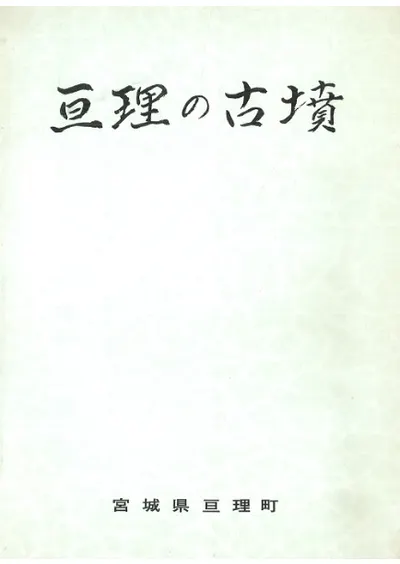 亘理の古墳
宮城県亘理町